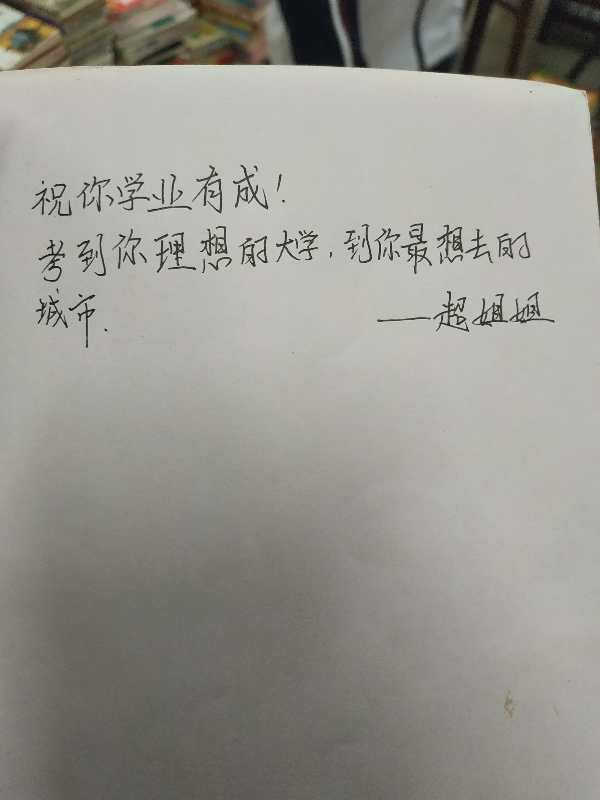 祝你学业有成！
考到你理想的大学，到你最想去的
城市.
——超姐姐